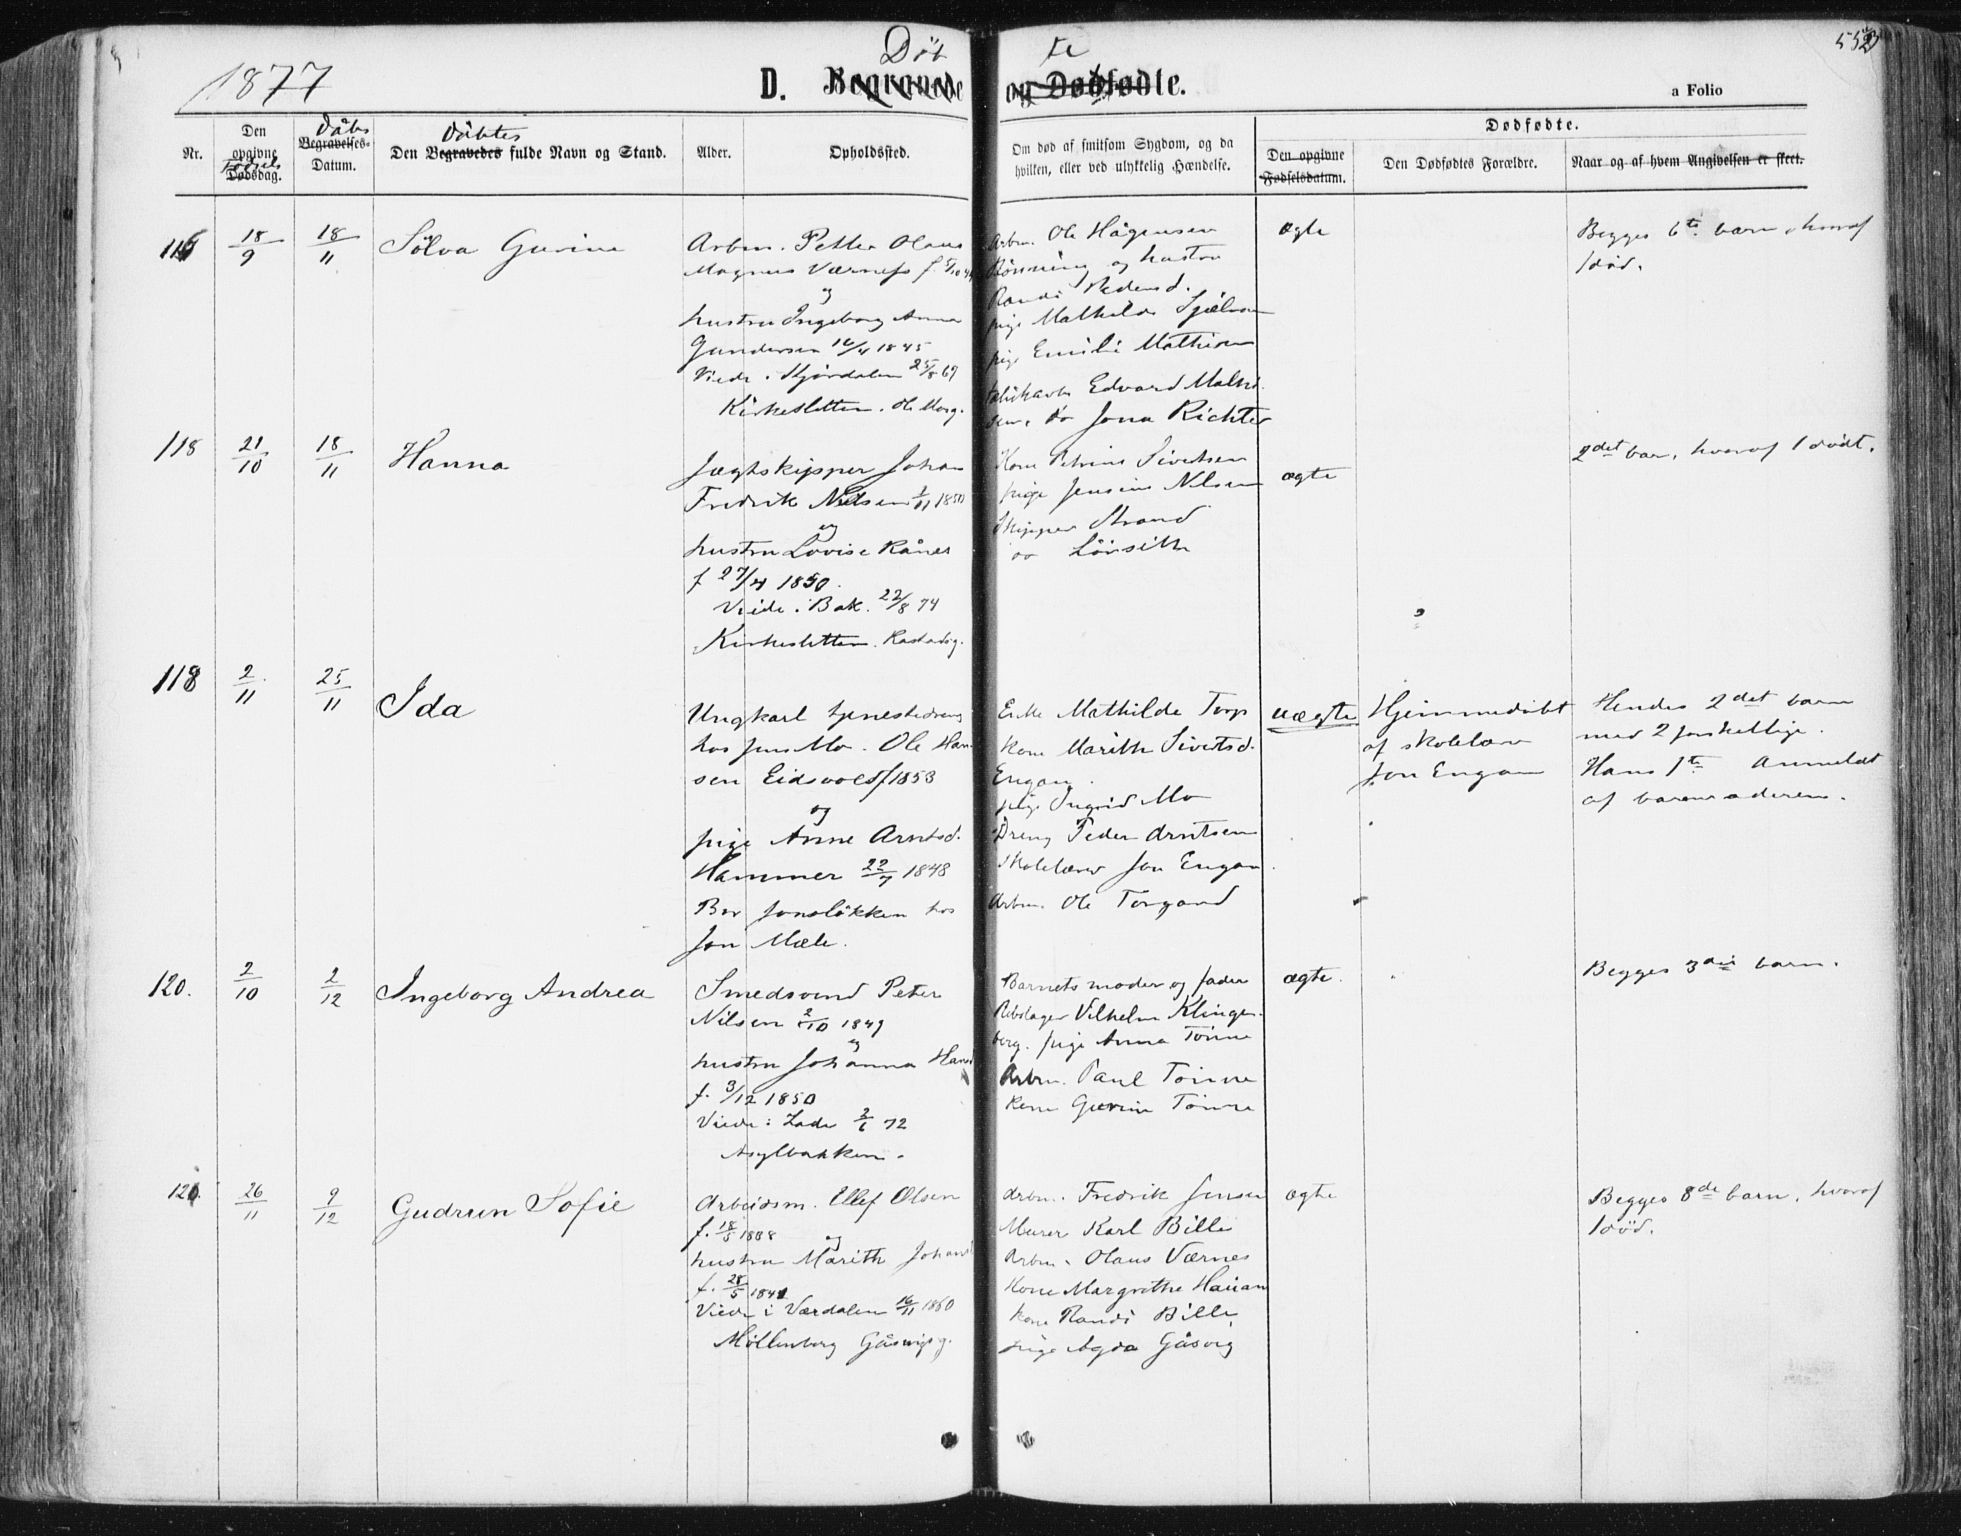 1877
Döb te
552
D. Begravede og Dødfødte.
a Folio
Nr.
Den opgivne Fødsels Dødsdag.
Dåbs Begravelses-Datum.
Döbtes
Den Begravedes fulde Navn og Stand.
Alder.
Opholdssted.
Om død af smitsom Sygdom, og da
hvilken, eller ved ulykkelig Hændelse.
Dødfødte.
Den opgivne
Fødselsdatum.
Den Dødfødtes Forældre.
Naar og af hvem Angivelsen er skeet.
18/9
18/11
Sölva Gurine
Arbm. Petter Olaus
Magnus Værness f.
og
hustru Ingeborg Anna
Gundersen 16/4 1845
Viede i Stjørdalen 25/8 69
Kirkesletten.
Arbm. Ole Hågensen
Rönning og hustru
Randi Pedersd.
pige Mathilde
pige Emilie Mathisen
Edvard
sen, do Jona Richter
ægte
Begges 6te barn, hvoraf
1 död.
118
21/10
18/11
Hanna
Jægtskipper Johan
Fredrik Nielsen 1850
og
hustru Lovise Rånes
f 27/4 1850.
Viede i Bak. 22/8 74
Kirkesletten.
Kone Petrine Sivertsen
pige Jensine Nilsen
Skipper Strand
do Lönseth
ægte
2det bar, hvoraf 1 dödt.
118
2/11
25/11
Ida
Ungkarl tjenestedreng
hos Jens Mo. Ole Han-
sen Eidsvold f 1853
og
pige Anne Arntsd.
Hammer 22/7 1848
Bor Jonsløkken hos
Jon Mæle.
Enke Mathilde Torp
Kone Marith Sivertsd.
Engan.
pige Ingrid Mo
Dreng Peder Arntsen
Skolelærer Jon Engan
Arbm. Ole Torgard
uægte
Hjemmedöbt
af skolelær
Jon Engan
Hendes 2det barn
med 2 forskellige.
Hans 1te Anmeldt
af barnefaderen.
120.
2/10
2/12
Ingeborg Andrea
Smedsvend Peter
Nilsen 2/10 1849
og
hustru Johanna Hans
f. 3/12 1850
Viede i Lade 2/6 72
Asylbakken.
Barnets moder og fader
Rebslager Vilhelm Klingen-
berg. pige Anna Tönne
Arbm. Paul Tönne
Kone Gurine Tönne
ægte.
Begges 3die barn.
26/11
9/12
Gudrun Sofie
Arbeidsm. Ellef Olsen
f. 18/5 1838
og
hustru Marith Johansd
f. 28/5 1841
Viede i Værdalen 16/11 1860
Möllenberg
Arbm. Fredrik Jensen
Murer Karl Bille
Arbm. Olaus Værnes
Kone Margrethe
Kone Randi Bille
pige Agda Gåsvig
ægte
Begges 8de barn, hvoraf
1 död.